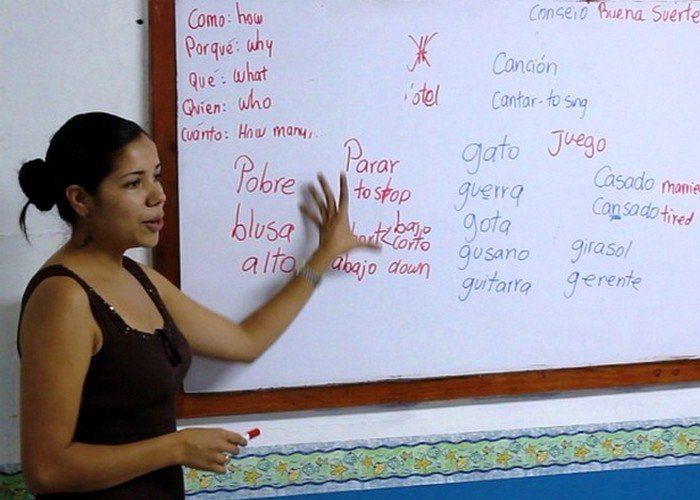 Como: how
Porqué: why
Qué: what
Quien: who
Cuánto: How many,...
Consejo Buena Suerte
Canción
Cantar - to sing
Pobre
blusa
alto
Parar
to stop
bajo
corto
abajo down
gato
guerra
gota
gusano
guitarra
Juego
girasol
gerente
Casado
Cansado tired